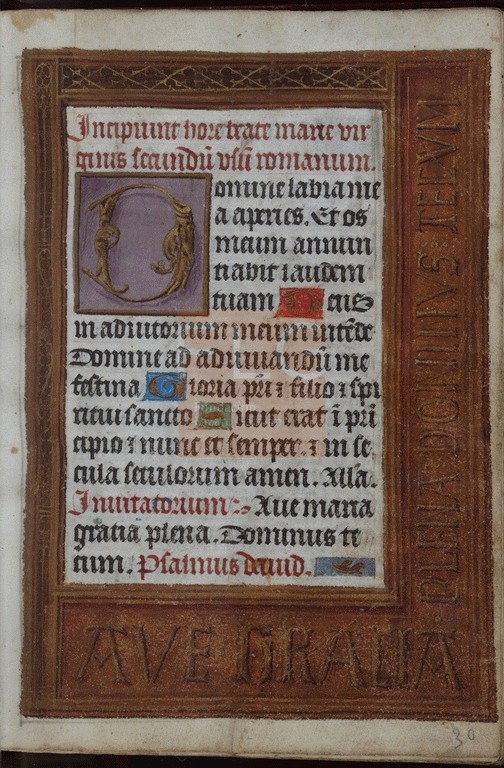 Incipiunt hore beate marie vir
ginis secundũ vsũ romanum.
Domine labia me
a aperies. Et os
meum annun
tiabit laudem
tuam Deus
in adiutorium meum intẽde
Domine ad adiuuandũ me
festina Gloria pr̃i ⁊ filio ⁊ spi
ritui sancto Sicut erat ĩ pri
cipio ⁊ nunc et semper. ⁊ in se
cula seculorum amen. Alla.
Inuitatorium: Aue maria
gratia plena. Dominus te
cum. Psalmus dauid.
AVE GRACIA
PLENA DOMINVS TECVM
30